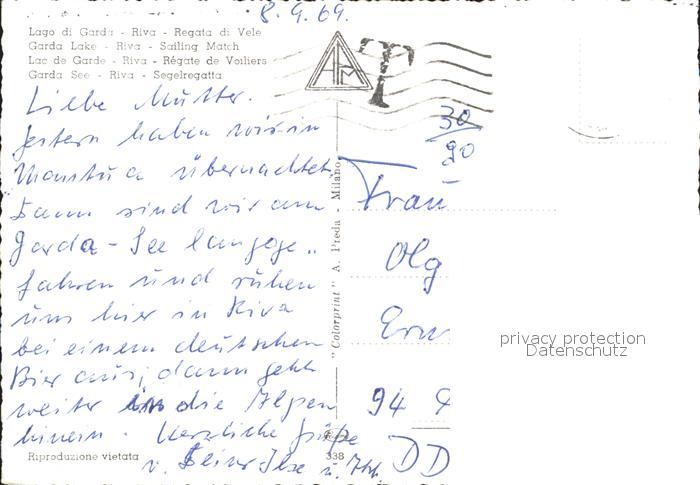 8.9.69.
Lago di Garda - Riva - Regata di Vele
Garda Lake - Riva - Sailing Match
Lac de Garde - Riva - Régate de Voiliers
Garda See - Riva - Segelregatta
Liebe Mutter.
Gestern haben wir in
Mantua übernachtet
Dann sind wir am
Garda-See langge..
fahren und ruhen
uns hier in Riva
bei einem deutschen
Bier aus; dann geht
weiter in die Alpen
hinein. Herzliche Grüße
v. Deiner Ilse u.
Riproduzione vietata
338
"Colorprint" A. Preda - Milano
APM
T
30
90
Frau
Olg
Ern
94
DD
privacy protection
Datenschutz